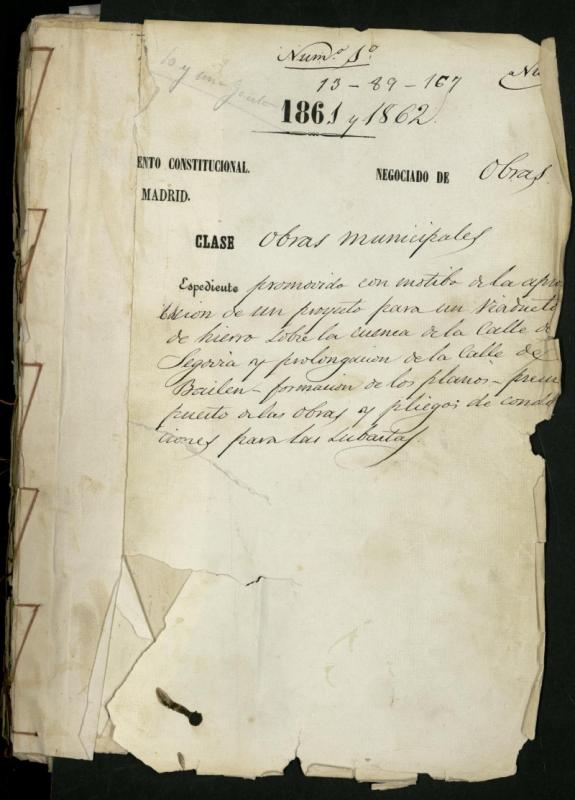 Num.º 1º
13-89-167
1861 y 1862.
ENTO CONSTITUCIONAL.
MADRID.
NEGOCIADO DE Obras.
CLASE Obras municipales
Espediente promovido con motibo de la apro
cion de un proyecto para un Viaducto
de hierro sobre la cuenca de la Calle de
Segovia y prolongacion de la Calle de
Bailen - formacion de los planos - presu
puesto de las obras y pliegos de condi
ciones para las subastas.